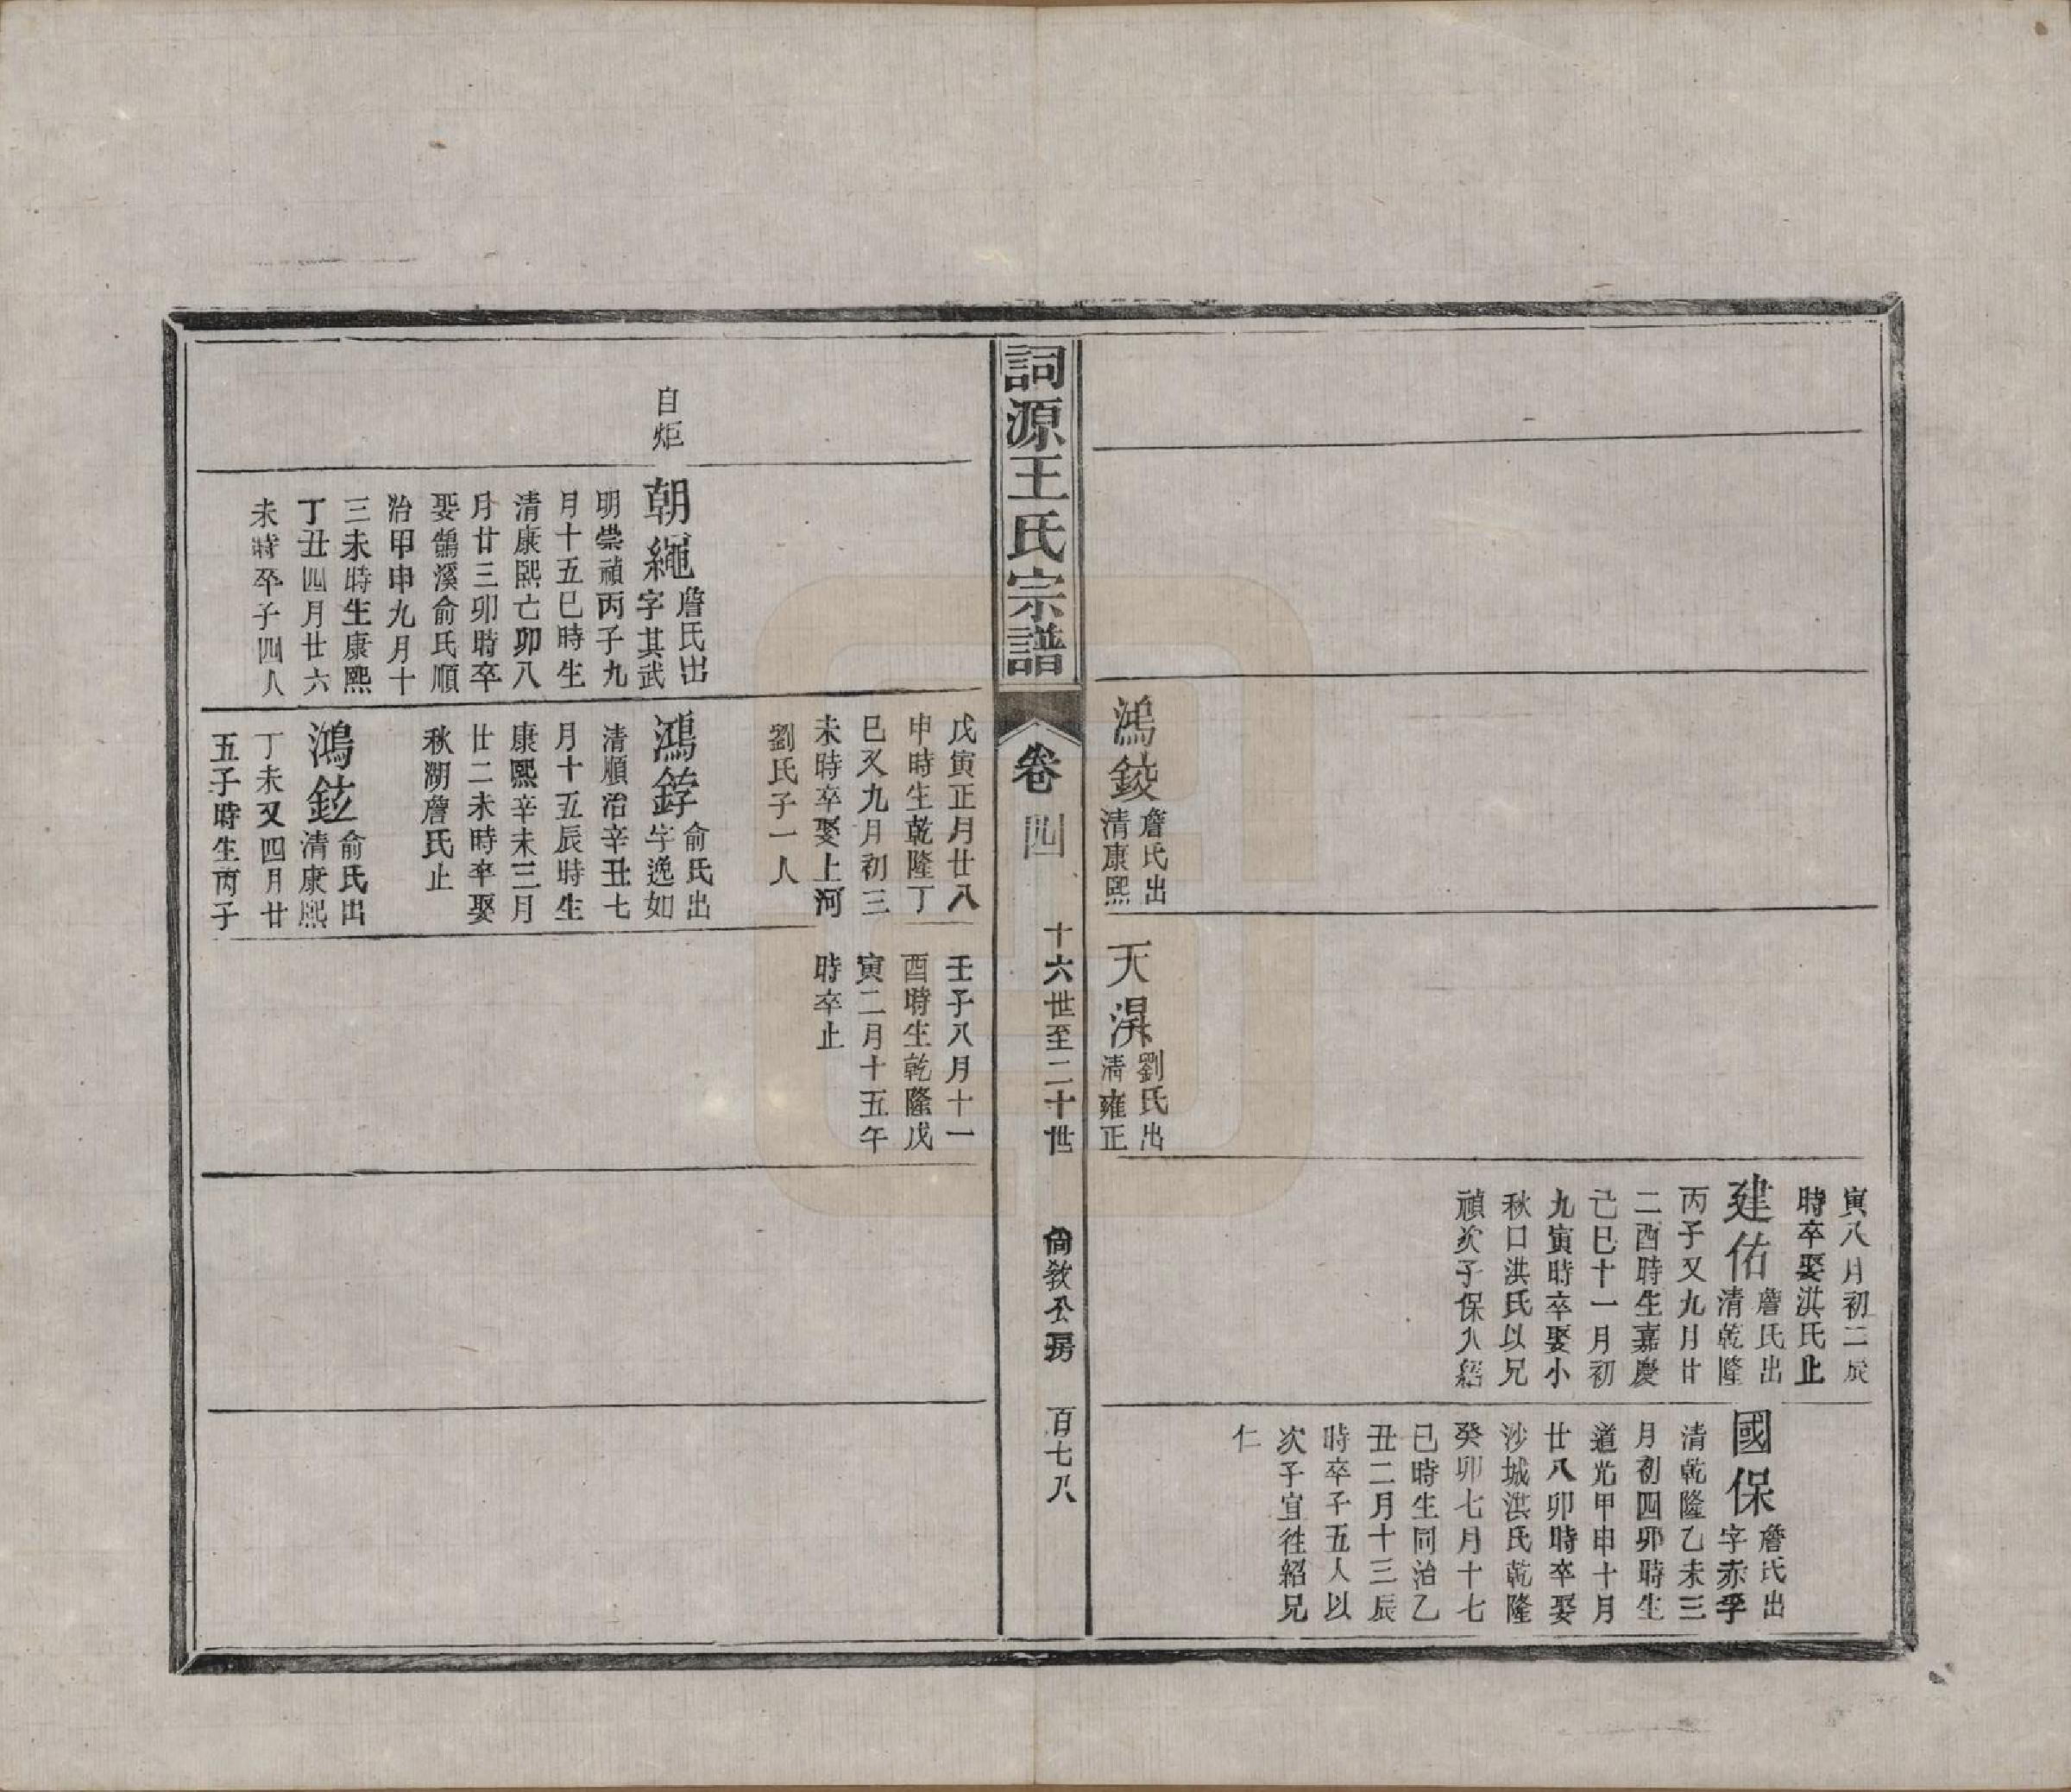 寅八月初二辰
時卒娶洪氏止
建佑
詹氏出
清乾隆
丙子又九月廿
二酉時生嘉慶
己巳十一月初
九寅時卒娶小
秋口洪氏以兄
禎次子保入繼
國保
詹氏出
字赤孚
清乾隆乙未三
月初四卯時生
道光甲申十月
廿八卯時卒娶
沙城洪氏乾隆
癸卯七月十七
巳時生同治乙
丑二月十三辰
時卒子五人以
次子宜徃紹兄
仁
鴻錂
詹氏出
清康熙
天淏
劉氏出
清雍正
詞源王氏宗譜
卷四
十六世至二十世
尙敎公房
百七八
戊寅正月廿八
申時生乾隆丁
巳又九月初三
未時卒娶上河
劉氏子一人
壬子八月十一
酉時生乾隆戊
寅二月十五午
時卒止
自炬
朝繩
詹氏出
字其武
明崇禎丙子九
月十五巳時生
清康熙己卯八
月廿三卯時卒
娶鵠溪俞氏順
治甲申九月十
三未時生康熙
丁丑四月廿六
未時卒子四人
鴻錞
俞氏出
字逸如
清順治辛丑七
月十五辰時生
康熙辛未三月
廿二未時卒娶
秋湖詹氏止
鴻鉉
俞氏出
清康熙
丁未又四月廿
五子時生丙子